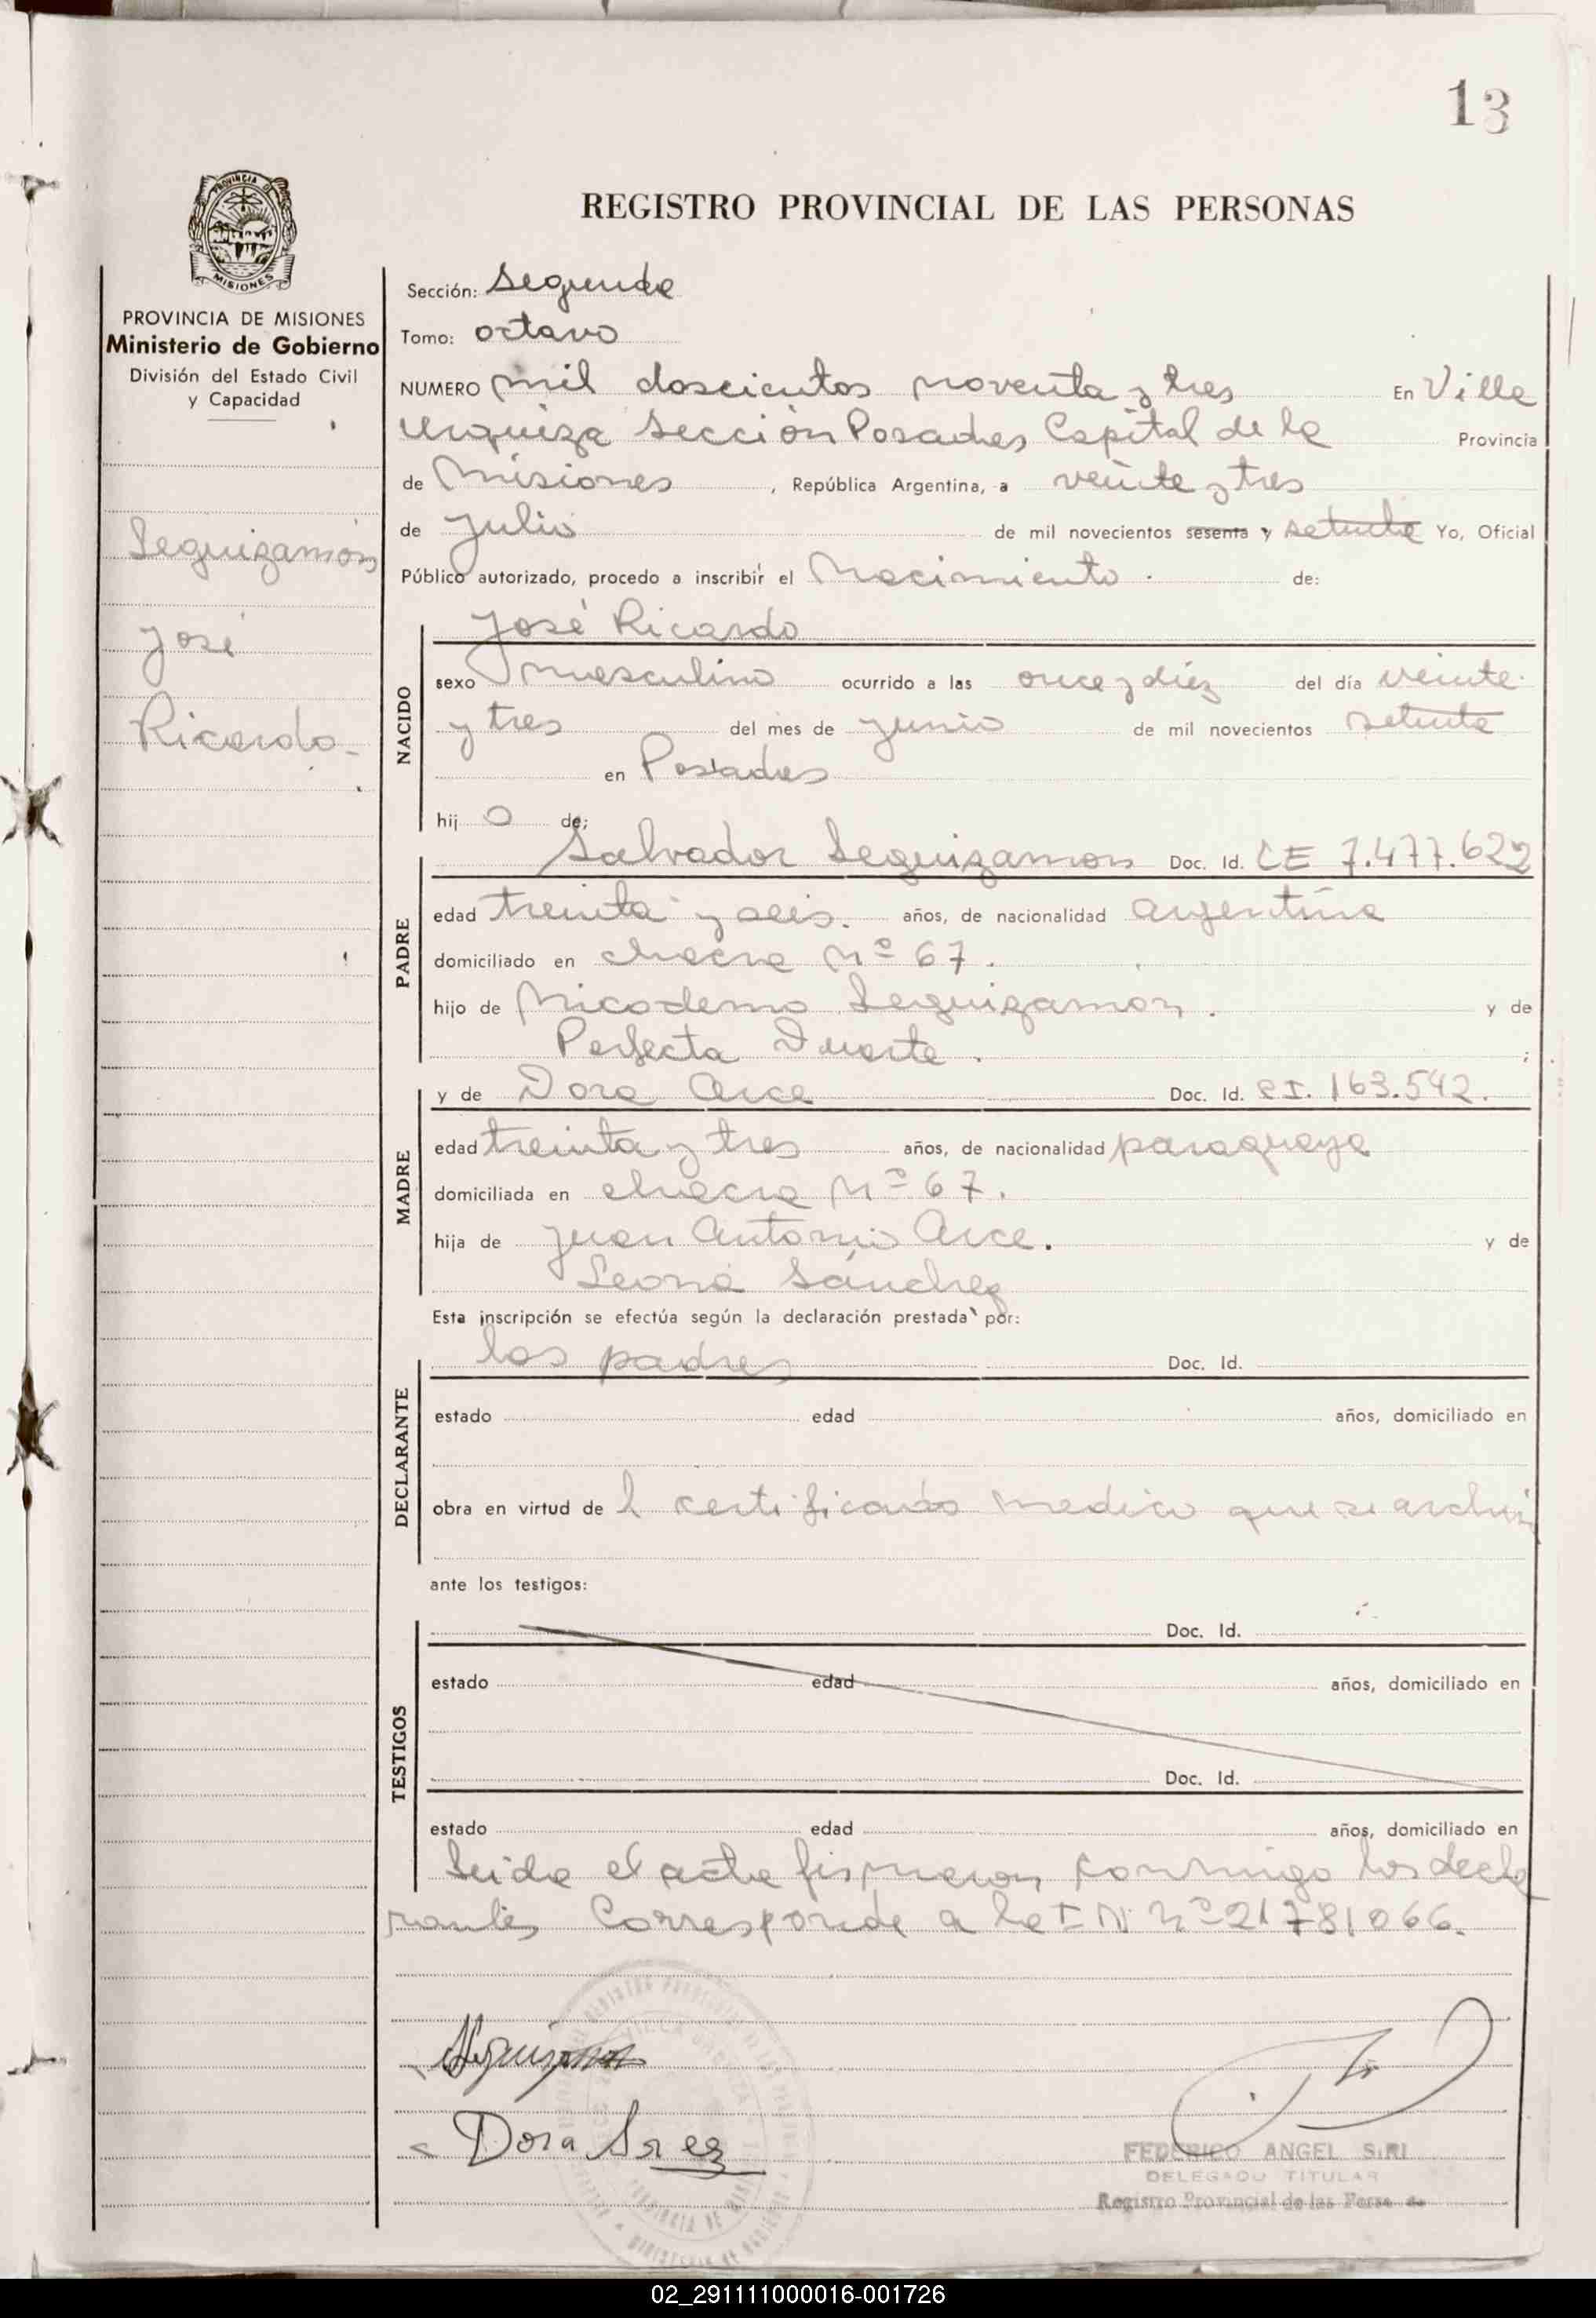 13
PROVINCIA DE
MISIONES
REGISTRO PROVINCIAL DE LAS PERSONAS
PROVINCIA DE MISIONES
Ministerio de Gobierno
División del Estado Civil
y Capacidad
Leguizamón
José
Ricardo-
Sección: Segunda
Tomo: octavo
NUMERO mil doscientos noventa y tres En Villa
Urquiza Sección Posadas Capital de la Provincia
de Misiones, República Argentina, a veinte y tres
de Julio de mil novecientos sesenta y setenta Yo, Oficial
Público autorizado, procedo a inscribir el Nacimiento. de:
NACIDO
José Ricardo
sexo masculino ocurrido a las once y diez del día veinte
y tres del mes de junio de mil novecientos setenta
en Posadas
hijo de;
PADRE
Salvador Leguizamon Doc. Id. CE 7.477.622
edad treinta y seis. años, de nacionalidad argentina
domiciliado en chacra Nº 67.
hijo de Nicodemo Leguizamon. y de
Perfecta Duarte. ;
MADRE
y de Dora Arce Doc. Id. CI. 163.542.
edad treinta y tres años, de nacionalidad paraguaya
domiciliada en chacra Nº 67.
hija de Juan Antonio Arce. y de
Leona Sánchez
Esta inscripción se efectúa según la declaración prestada por:
DECLARANTE
los padres Doc. Id.
estado edad años, domiciliado en
obra en virtud de l certificado medico que se archiva
ante los testigos:
TESTIGOS
Doc. Id.
estado edad años, domiciliado en
Doc. Id.
estado edad años, domiciliado en
Leida el acta firmaron conmigo los decla
rantes Corresponde a la I N nº 21781066.
Leguizamon
Dora Arce
FEDERICO ANGEL SIRI
DELEGADO TITULAR
Registro Provincial de las Perso
02_291111000016-001726